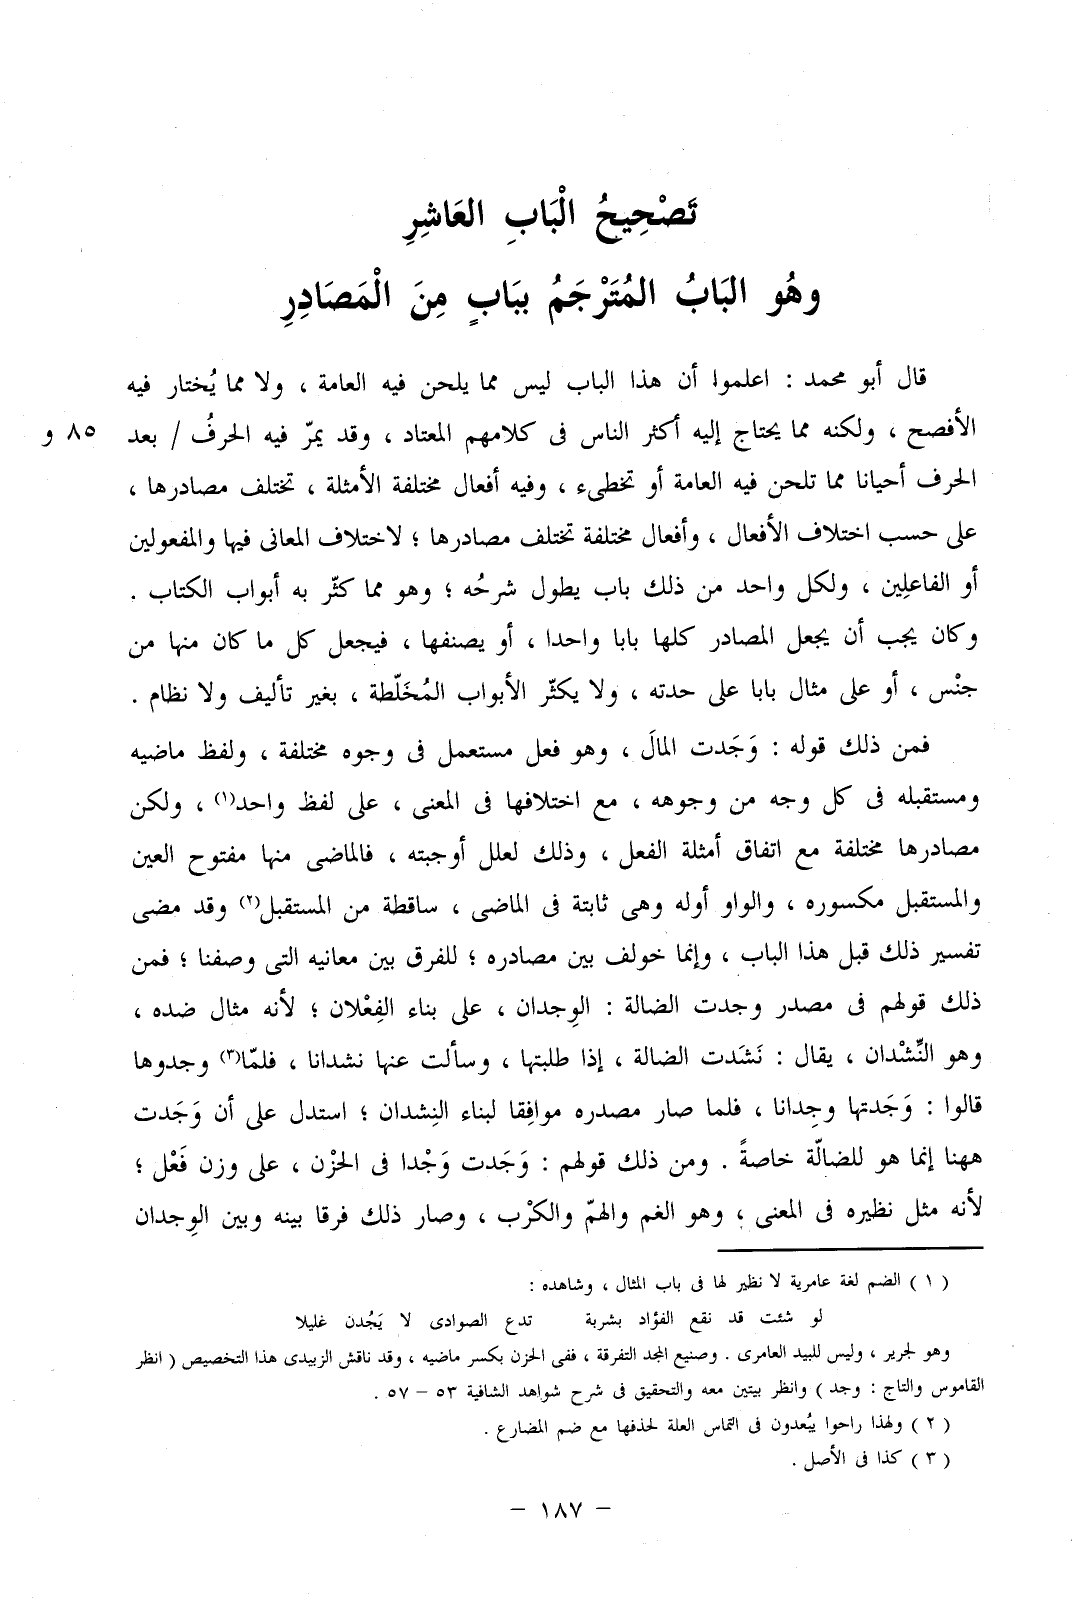 تَصْحِيحُ الْبَابِ العَاشِرِ
وهُو البَابُ المُتَرْجَمُ ببَابٍ مِنَ الْمَصَادِرِ
قال أبو محمد : اعلموا أن هذا الباب ليس مما يلحن فيه العامة ، ولا مما يُختار فيه
الأفصح ، ولكنه مما يحتاج إليه أكثر الناس فى كلامهم المعتاد ، وقد يمرّ فيه الحرفُ / بعد ٨٥ و
الحرف أحيانا مما تلحن فيه العامة أو تخطىء ، وفيه أفعال مختلفة الأمثلة ، تختلف مصادرها ،
على حسب اختلاف الأفعال ، وأفعال مختلفة تختلف مصادرها ؛ لاختلاف المعانى فيها والمفعولين
أو الفاعلِين ، ولكل واحد من ذلك باب يطول شرحُه ؛ وهو مما كثّر به أبواب الكتاب .
وكان يجب أن يجعل المصادر كلها بابا واحدا ، أو يصنفها ، فيجعل كل ما كان منها من
جنْس ، أو على مثال بابا على حدته ، ولا يكثّر الأبواب المُخَلّطة ، بغير تأليف ولا نظام .
فمن ذلك قوله : وَجَدت المالَ ، وهو فعل مستعمل فى وجوه مختلفة ، ولفظ ماضيه
ومستقبله فى كل وجه من وجوهه ، مع اختلافها فى المعنى ، على لفظ واحد(١) ، ولكن
مصادرها مختلفة مع اتفاق أمثلة الفعل ، وذلك لعلل أوجبته ، فالماضى منها مفتوح العين
والمستقبل مكسوره ، والواو أوله وهى ثابتة فى الماضى ، ساقطة من المستقبل(٢) وقد مضى
تفسير ذلك قبل هذا الباب ، وإنما خولف بين مصادره ؛ للفرق بين معانيه التى وصفنا ؛ فمن
ذلك قولهم فى مصدر وجدت الضالة : الوِجدان ، على بناء الفِعْلان ؛ لأنه مثال ضده ،
وهو النِّشْدان ، يقال : نَشَدت الضالة ، إذا طلبتها ، وسألت عنها نشدانا ، فلمّا(٣) وجدوها
قالوا : وَجَدتها وجِدانا ، فلما صار مصدره موافِقا لبناء النِشدان ؛ استدل على أن وَجَدت
ههنا إنما هو للضالّة خاصةً . ومن ذلك قولهم : وَجَدت وَجْدا فى الحزْن ، على وزن فَعْل ؛
لأنه مثل نظيره فى المعنى ؛ وهو الغم والهمّ والكرْب ، وصار ذلك فرقا بينه وبين الوِجدان
( ١ ) الضم لغة عامرية لا نظير لها فى باب المثال ، وشاهده :
لو شئت قد نقع الفؤاد بشربة تدع الصوادى لا يَجُدن غليلا
وهو لجرير ، وليس للبيد العامرى . وصنيع المجد التفرقة ، ففى الحزن بكسر ماضيه ، وقد ناقش الزبيدى هذا التخصيص ( انظر
القاموس والتاج : وجد ) وانظر بيتين معه والتحقيق فى شرح شواهد الشافية ٥٣ – ٥٧ .
( ٢ ) ولهذا راحوا يبُعدون فى التماس العلة لحذفها مع ضم المضارع .
( ٣ ) كذا فى الأصل .
– ١٨٧ –